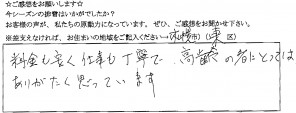 ☆ご感想をお願いします☆
今シーズンの排雪はいかがでしたか？
お客様の声が、私たちの原動力になっています。ぜひ、ご感想をお聞かせ下さい。
※差支えなければ、お住まいの地域をご記入ください→札幌(市) (東 区)
料金も良く仕事も丁寧で、高齢の者にとっては
ありがたく思っています